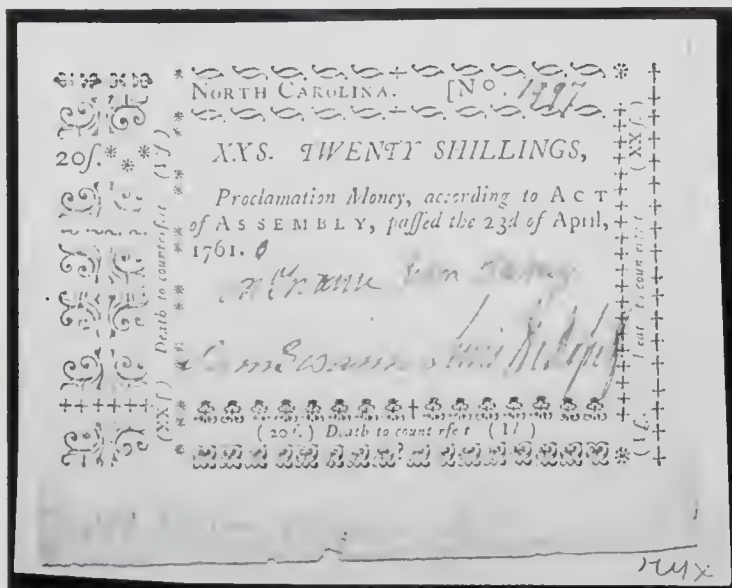 NORTH CAROLINA. [No. 1797
20ſ.
XXS. TWENTY SHILLINGS,
Proclamation Money, according to ACT
of ASSEMBLY, paſſed the 23d of April,
1761.
Sam Swann
(20ſ.) Death to count rfe t (1l)
(XXſ) Death to counterfeit (1ſ)
(XXſ) eat t coun erfeit (1ſ.